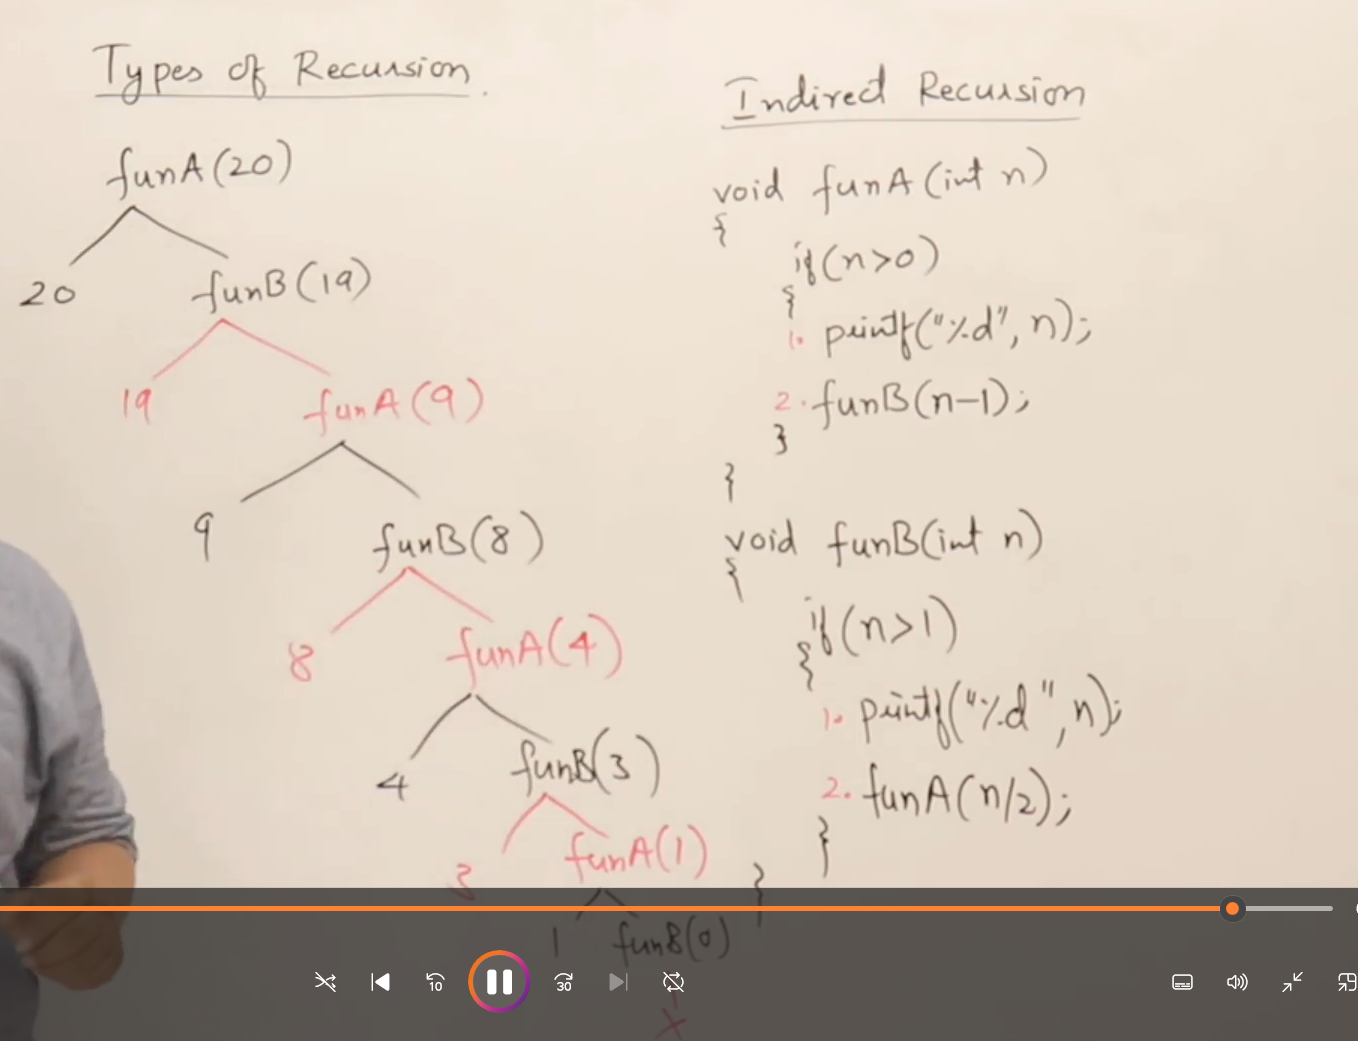 Types of Recursion.
funA(20)
20
funB(19)
19
funA(9)
9
funB(8)
8
funA(4)
4
funB(3)
3
funA(1)
1
funB(0)
x
Indirect Recursion
void funA(int n)
{
if(n>0)
{
1. printf("%d", n);
2. funB(n-1);
}
}
void funB(int n)
{
if(n>1)
{
1. printf("%d", n);
2. funA(n/2);
}
}
10
30